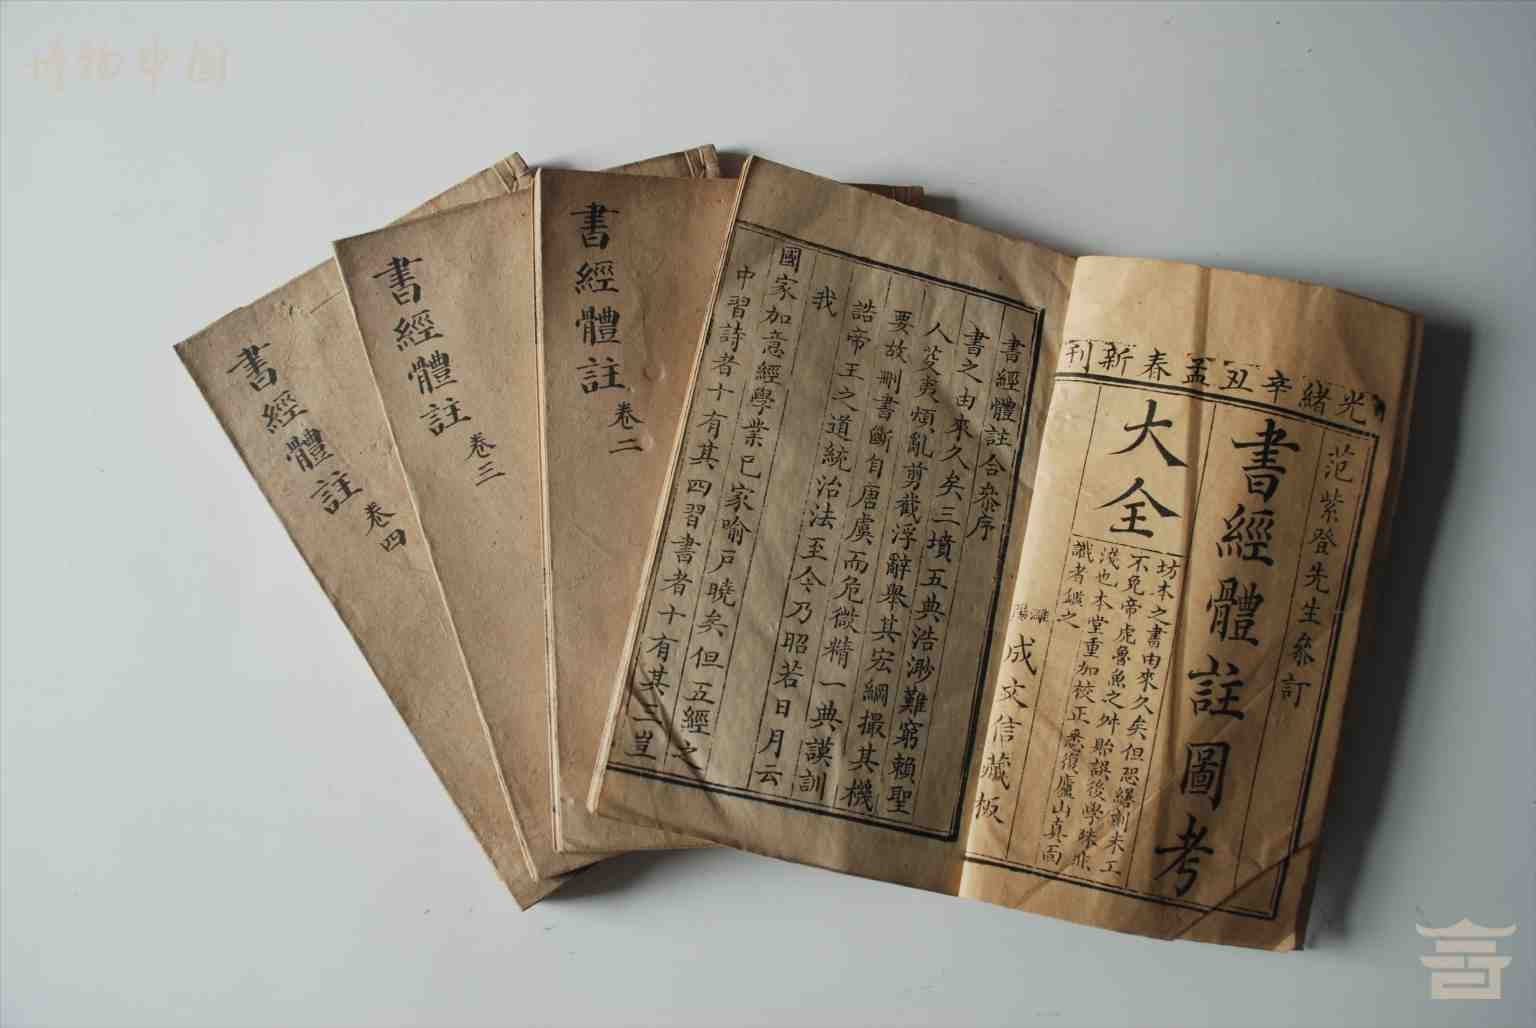 光緒辛丑孟春新刊
范紫登先生參訂
書經體註圖考
大全
坊本之書由來久矣但恐繕刻未工
不免帝虎魯魚之舛貽誤後學殊非
淺也本堂重加校正悉復廬山真面
識者鑑之
成文信藏板
書經體註合叅序
書之由來久矣三墳五典浩渺難窮賴聖
人芟夷煩亂剪截浮辭舉其宏綱撮其機
要故刪書斷自唐虞而危微精一典謨訓
誥帝王之道統治法至今乃昭若日月云
我
國家加意經學業已家喻戶曉矣但五經之
中習詩者十有其四習書者十有其二豈
書經體註 卷二
書經體註 卷三
書經體註 卷四
博物中国